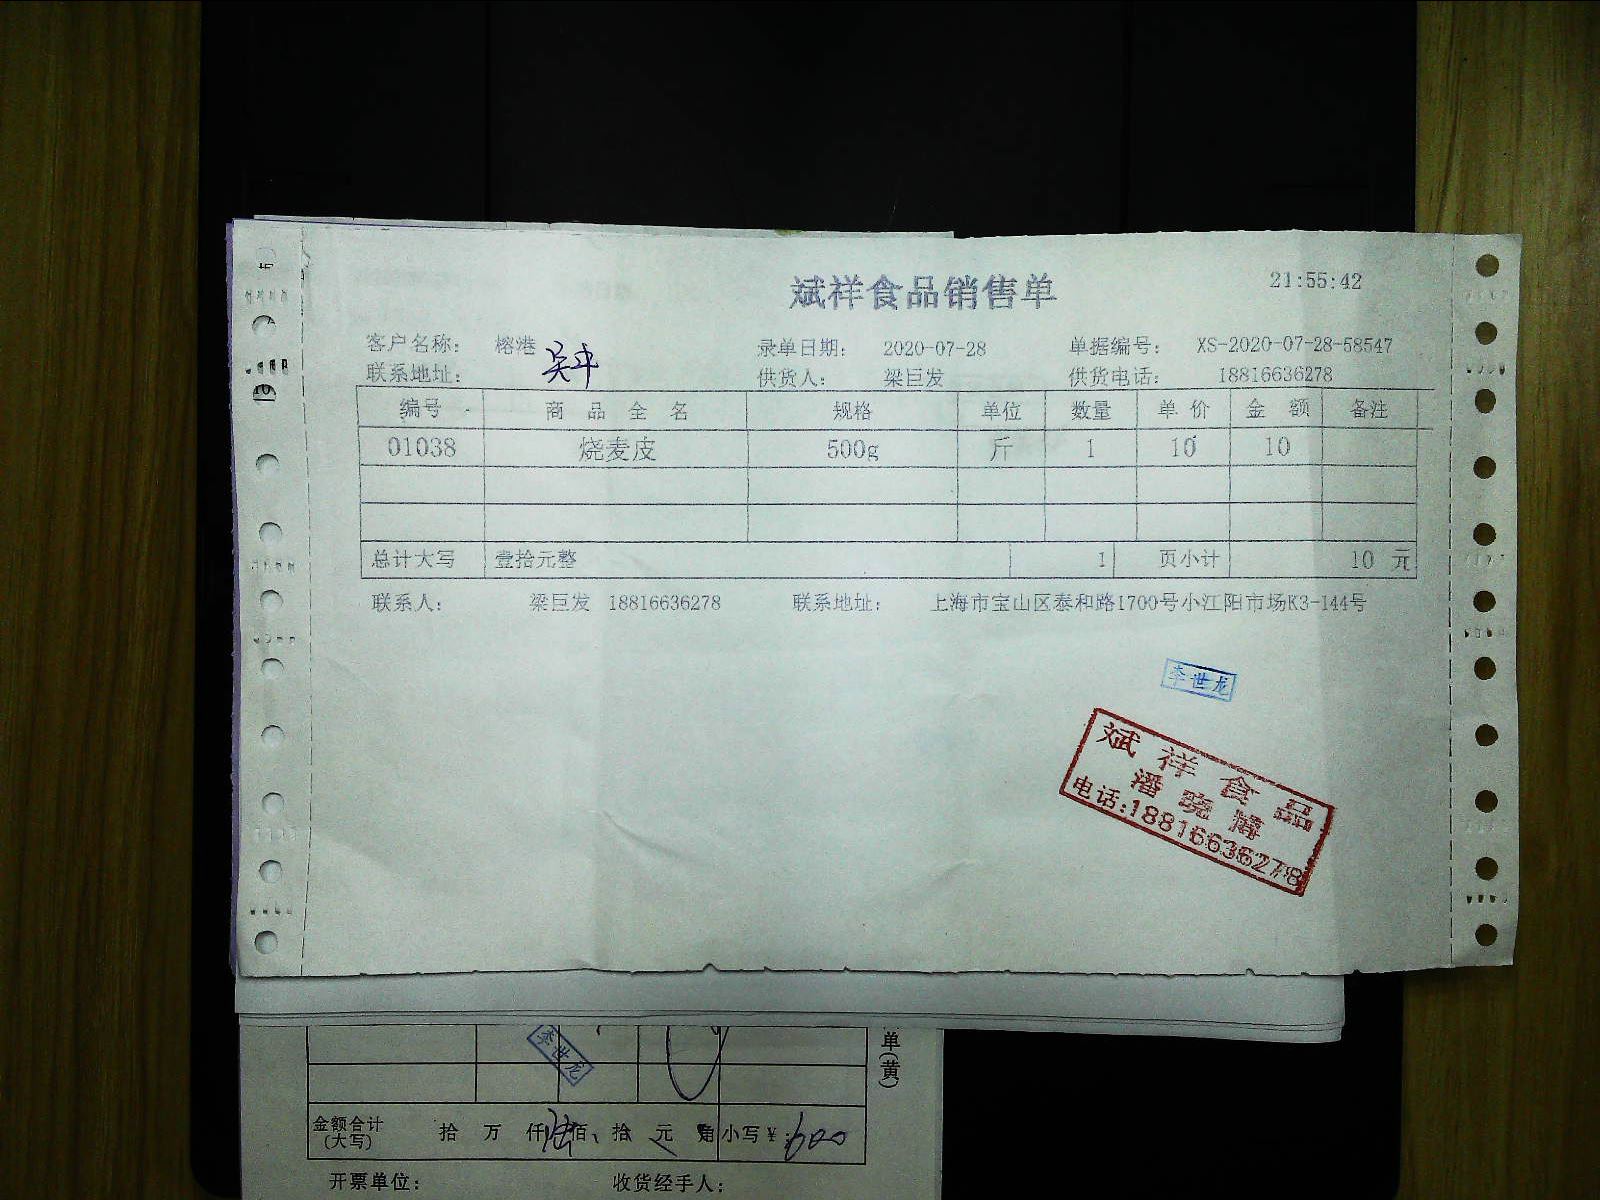 斌祥食品销售单 21:55:42
客户名称： 榕港 录单日期： 2020-07-28 单据编号： XS-2020-07-28-58547
联系地址： 供货人： 梁巨发 供货电话： 18816636278
编号 商品全名 规格 单位 数量 单价 金额 备注
01038 烧麦皮 500g 斤 1 10 10
总计大写 壹拾元整 1 页小计 10 元
联系人： 梁巨发 18816636278 联系地址： 上海市宝山区泰和路1700号小江阳市场K3-144号
李世龙
斌祥食品
潘晓
电话:18816636278
单(黄)
李世龙
金额合计(大写) 拾 万 仟 陆 佰 拾 元 角 小写￥: 600
开票单位: 收货经手人: